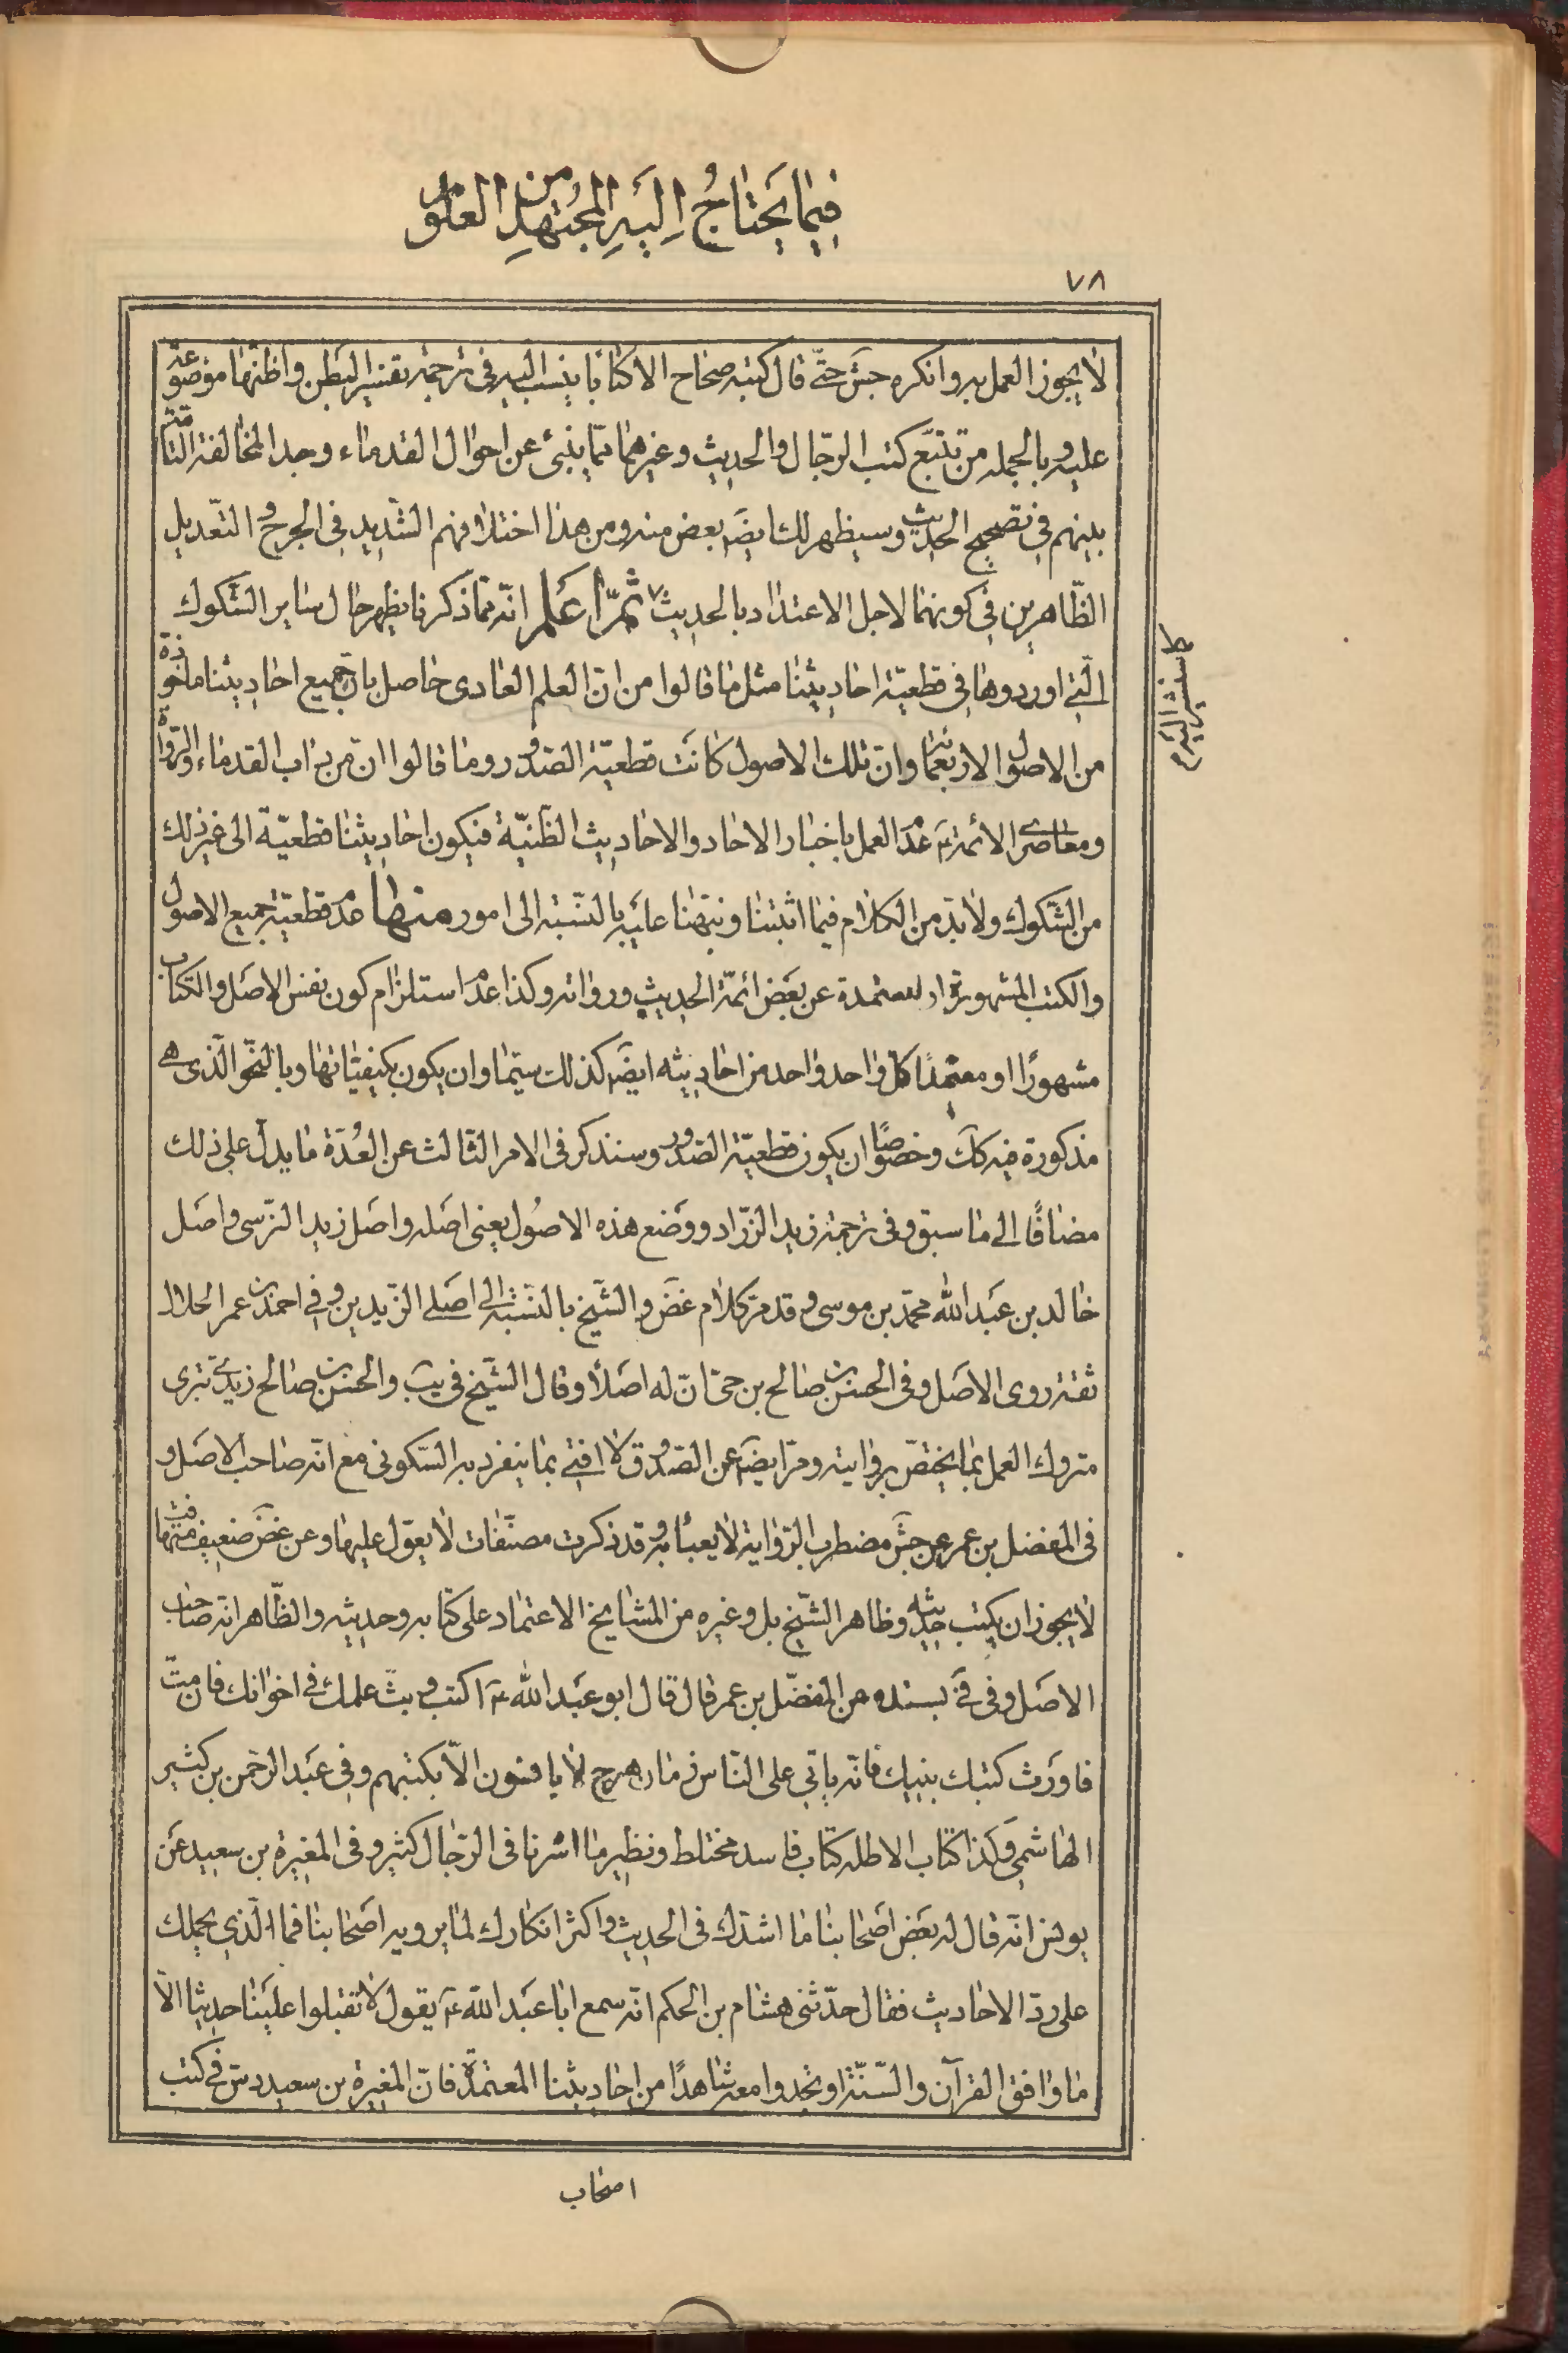 فيما يحتاج اليه المجتهد من العلوم
٧٨
لا يجوز العمل به وانكره جش حتّى قال كتبه صحاح الا كتابا ينسب اليه فى ترجمة تفسير البطن واظنّها موضوعة
عليه وبالجملة من تتبّع كتب الرّجال والحديث وغيرهما ممّا ينبئ عن احوال القدماء وجد المخالفة التامّة
بينهم فى تصحيح الحديث وسيظهر لك ايضَ بعض منه ومن هذا اختلافهم الشّديد فى الجرح والتّعديل
الظّاهرين فى كونهما لاجل الاعتداد بالحديث ثمّ اعلم انّه ممّا ذكرنا يظهر حال ساير الشّكوك
الّتى اوردوها فى قطعيّة احاديثنا مثل ما قالوا من انّ العلم العادى حاصل بانّ جميع احاديثنا ماخوذة
من الاصول الاربعمائة وانّ تلك الاصول كانَت قطعيّة الصّدور وما قالوا انّ من داب القدماء والرّواة
ومعاصرى الائمّةع عدَم العمل باخبار الاحاد والاحاديث الظّنيّة فيكون احاديثنا قطعيّة الى غير ذلك
من الشّكوك ولا بدّ من الكلام فيما اثبتنا ونبّهنا عليَه بالنّسَبة الى امور منها عدَم قطعيّة جميع الاصول
والكتب المشهورة او المعتمدة عن بعَض ائمّة الحديث ورواته وكذا عدَم استلزام كون نفس الاصَل والكتاب
مشهورًا او معتمدًا كل واحد واحد من احاديثه ايضَ كذلك سيّما وان يكون بكيفيّاتها وبالنّحو الّذى هى
مذكورة فيه كك وخصوصًا ان يكون قطعيّة الصّدور وسنذكر فى الامر الثّالث عن العُدّة ما يدل على ذلك
مضافًا الى ما سبق وفى ترجمة زيد الزرّاد ووَضع هذه الاصُول يعنى اصَله واصَل زيد النّرسى واصَل
خالد بن عبَد الله محمّد بن موسى وقد مرّ كلام غضَ والشّيخ بالنّسَبة الى اصَلى الزّيدين وفى احمد بن عمر الحلال
ثقة ردى الاصَل وفى الحسن بن صالح بن حىّ انّ له اصَلاً وقال الشّيخ فى يبَ والحسن بن صالح زيدىّ بترى
متروك العمل بما يختصّ بروايته ومرّ ايضَ عن الصّدوق لا افتى بما ينفرد به السّكونى مع انّه صاحب الاصَل و
فى المفضل بن عمر عن جشَ مضطرب الرّواية لا يعبأ به وقد ذكرت مصنّفات لا يعوّل عليها وعن غضَ ضعيف متهافت
لا يجوز ان يكتب حديثه وظاهر الشّيخ بل وغيره من المشايخ الاعتماد على كتابه وحديثه والظّاهر انّه صاحب
الاصَل وفى فىَ بسنده عن المفضّل بن عمر قال قال ابو عبَد اللهع اكتب وبثّ علمك فى اخوانك فان متّ
فاورَث كتبك بنيك فانّه ياتى على النّاس زمان هرج لا يانسون الاّ بكتبهم وفى عبَد الرّحمن بن كثير
الهاشمى وكذا كتاب الاظله كتاب فاسد مختلط ونظير ما اشرنا فى الرّجال كثير وفى المغيرة بن سعيد عَن
يونس انّه قال له بعَض اصَحابنا ما اشدّك فى الحديث واكثر انكارك لما يرويه اصَحابنا فما الّذى يحملك
على ردّ الاحاديث فقال حدّثنى هشام بن الحكم انّه سمع ابا عبَد اللهع يقول لا تقبلوا علينا حديثا الاّ
ما وافق القرآن والسّنّة او تجدوا معه شاهدًا من احاديثنا المعتمدة فانّ المغيرة بن سعيد دسّ فى كتب
اصحاب